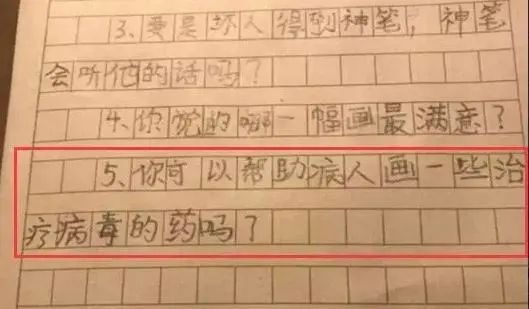 3、要是坏人得到神笔，神笔
会听他的话吗？
4、你觉的哪一幅画最满意？
5、你可以帮助病人画一些治
疗病毒的药吗？